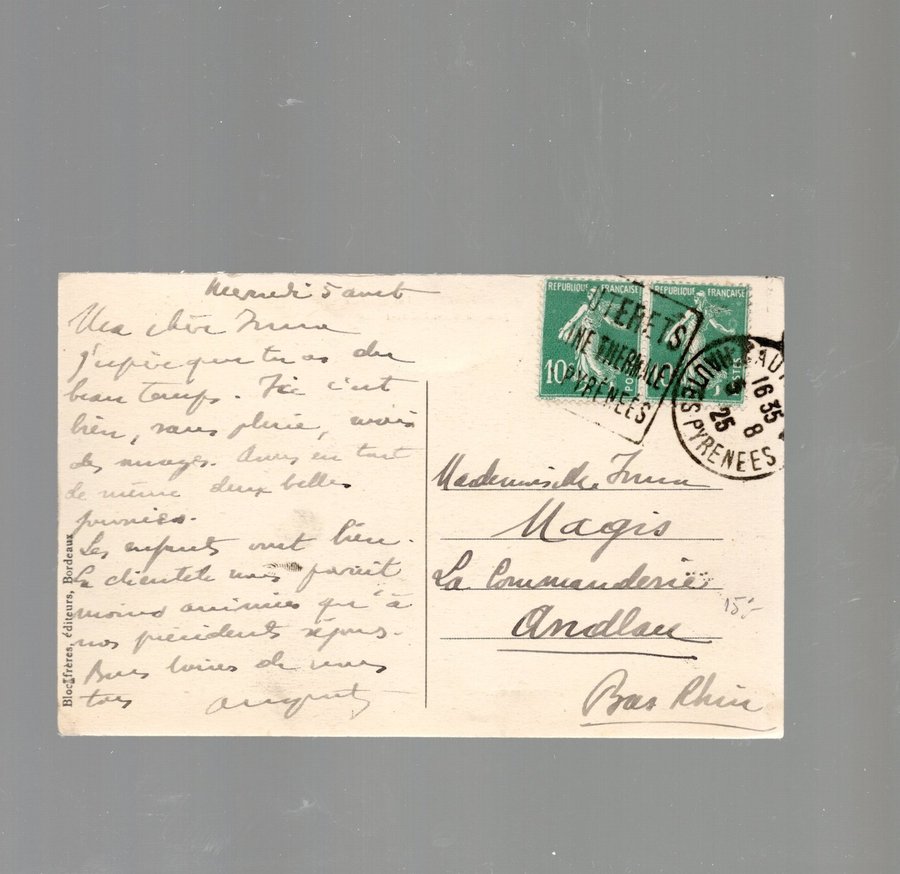 Mercredi 5 août
Ma chère Irma
J'espère que tu as du
beau temps. Ici c'est
bien, sans pluie, mais
des nuages. Avons eu tout
de même deux belles
journées.
Les enfants vont bien.
La clientèle nous paraît
moins animée qu'à
nos précédents séjours.
Bons baisers de nous
tous
Bloc frères, éditeurs, Bordeaux
REPUBLIQUE FRANÇAISE
10
POSTES
REPUBLIQUE FRANÇAISE
10
POSTES
UTERETS
THERMALE
PYRENEES
16 35
5
25 8
PYRENEES
Mademoiselle Irma
Magis
La Commanderie
Andlau
Bas Rhin
15 -